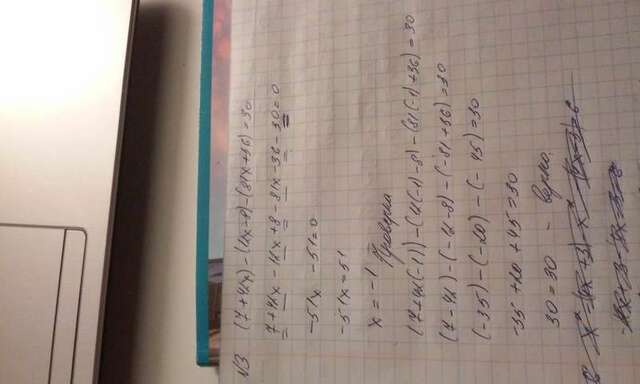 №3 (7+42x)-(12x-8)-(81x+36)=30
7+42x-12x+8-81x-36-30=0
-51x -51=0
-51x=51
x=-1 Проверка
(7+42(-1))-(12(-1)-8)-(81(-1)+36)=30
(7-42)-(-12-8)-(-81+36)=30
(-35)-(-20)-(-45)=30
-35+20+45=30
30=30 - верно.